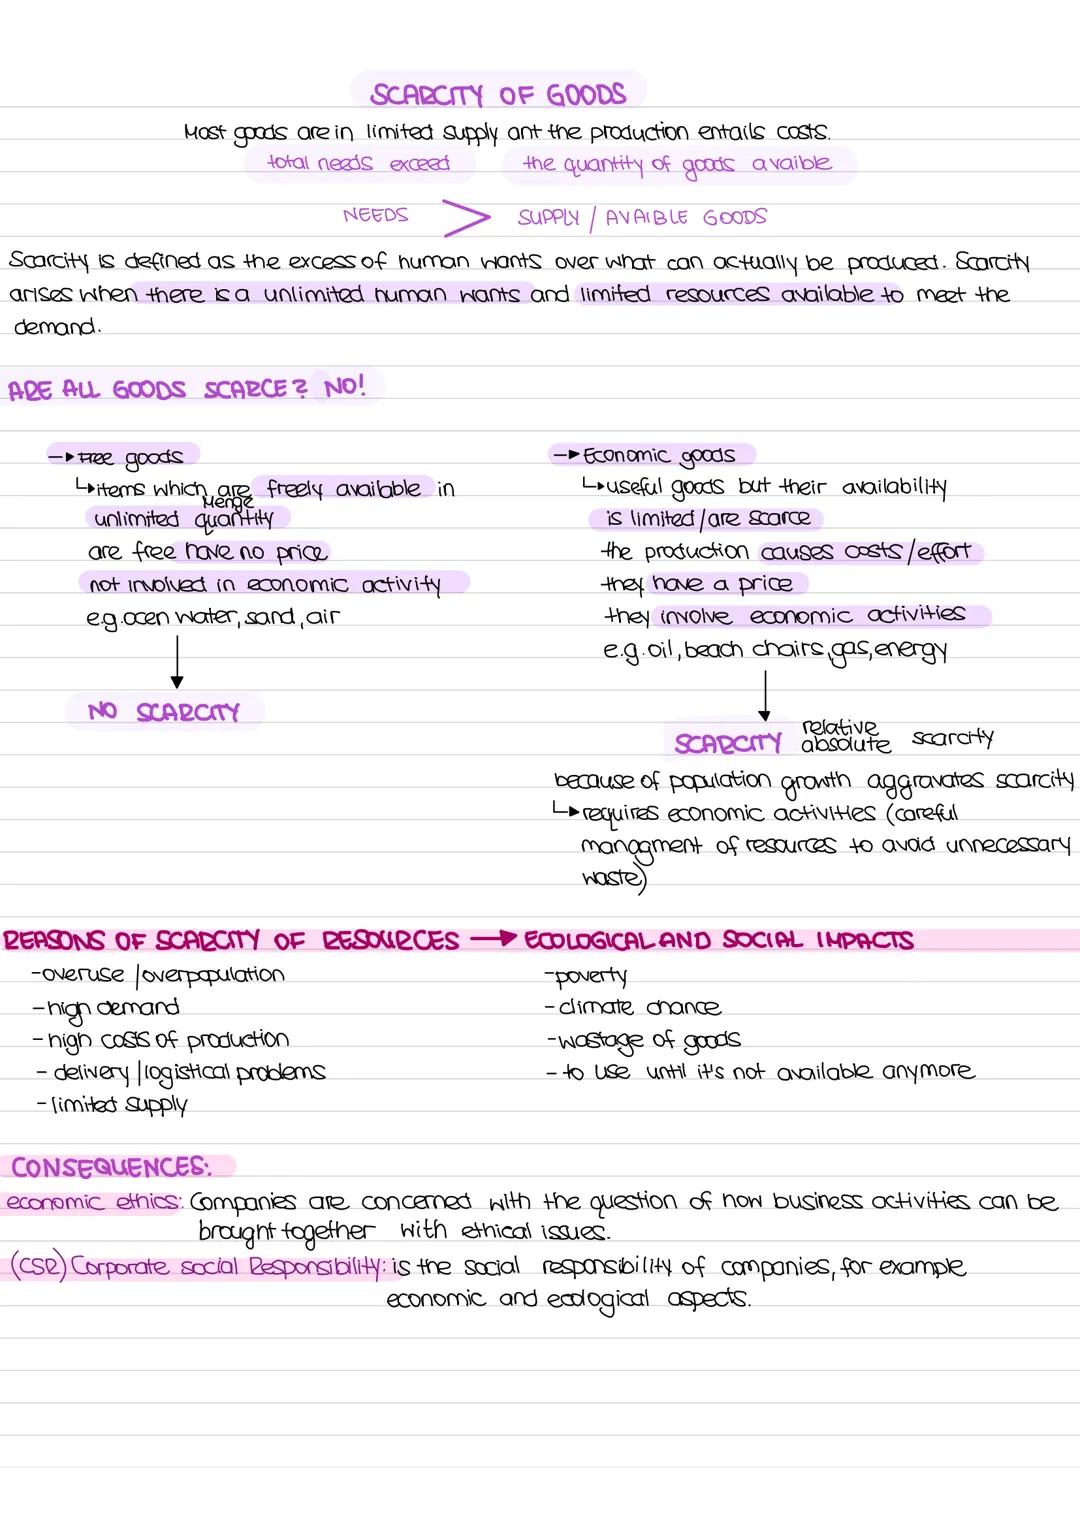 SCARCITY OF GOODS
Most goods are in limited supply ant the production entails costs.
total needs exceed the quantity of goods avaible
NEEDS > SUPPLY / AVAIBLE GOODS
Scarcity is defined as the excess of human wants over what can actually be produced. Scarcity
arises when there is a unlimited human wants and limited resources available to meet the
demand.
ARE ALL GOODS SCARCE? NO!
→ Free goods
↳ items which are freely available in
Menge
unlimited quantity
are free have no price
not involved in economic activity
e.g. ocen water, sand, air
NO SCARCITY
→ Economic goods
↳ useful goods but their availability
is limited / are scarce
the production causes costs / effort
they have a price
they involve economic activities
e.g. oil, beach chairs, gas, energy
SCARCITY relative absolute scarcity
because of population growth aggravates scarcity
↳ requires economic activities (careful
managment of resources to avoid unnecessary
waste)
REASONS OF SCARCITY OF RESOURCES → ECOLOGICAL AND SOCIAL IMPACTS
- overuse / overpopulation
- high demand
- high costs of production
- delivery / logistical problems
- limited supply
- poverty
- climate chance
- wastage of goods
- to use until it's not available anymore
CONSEQUENCES:
economic ethics: Companies are concerned with the question of how business activities can be
brought together with ethical issues.
(CSR) Corporate social Responsibility: is the social responsibility of companies, for example
economic and ecological aspects.